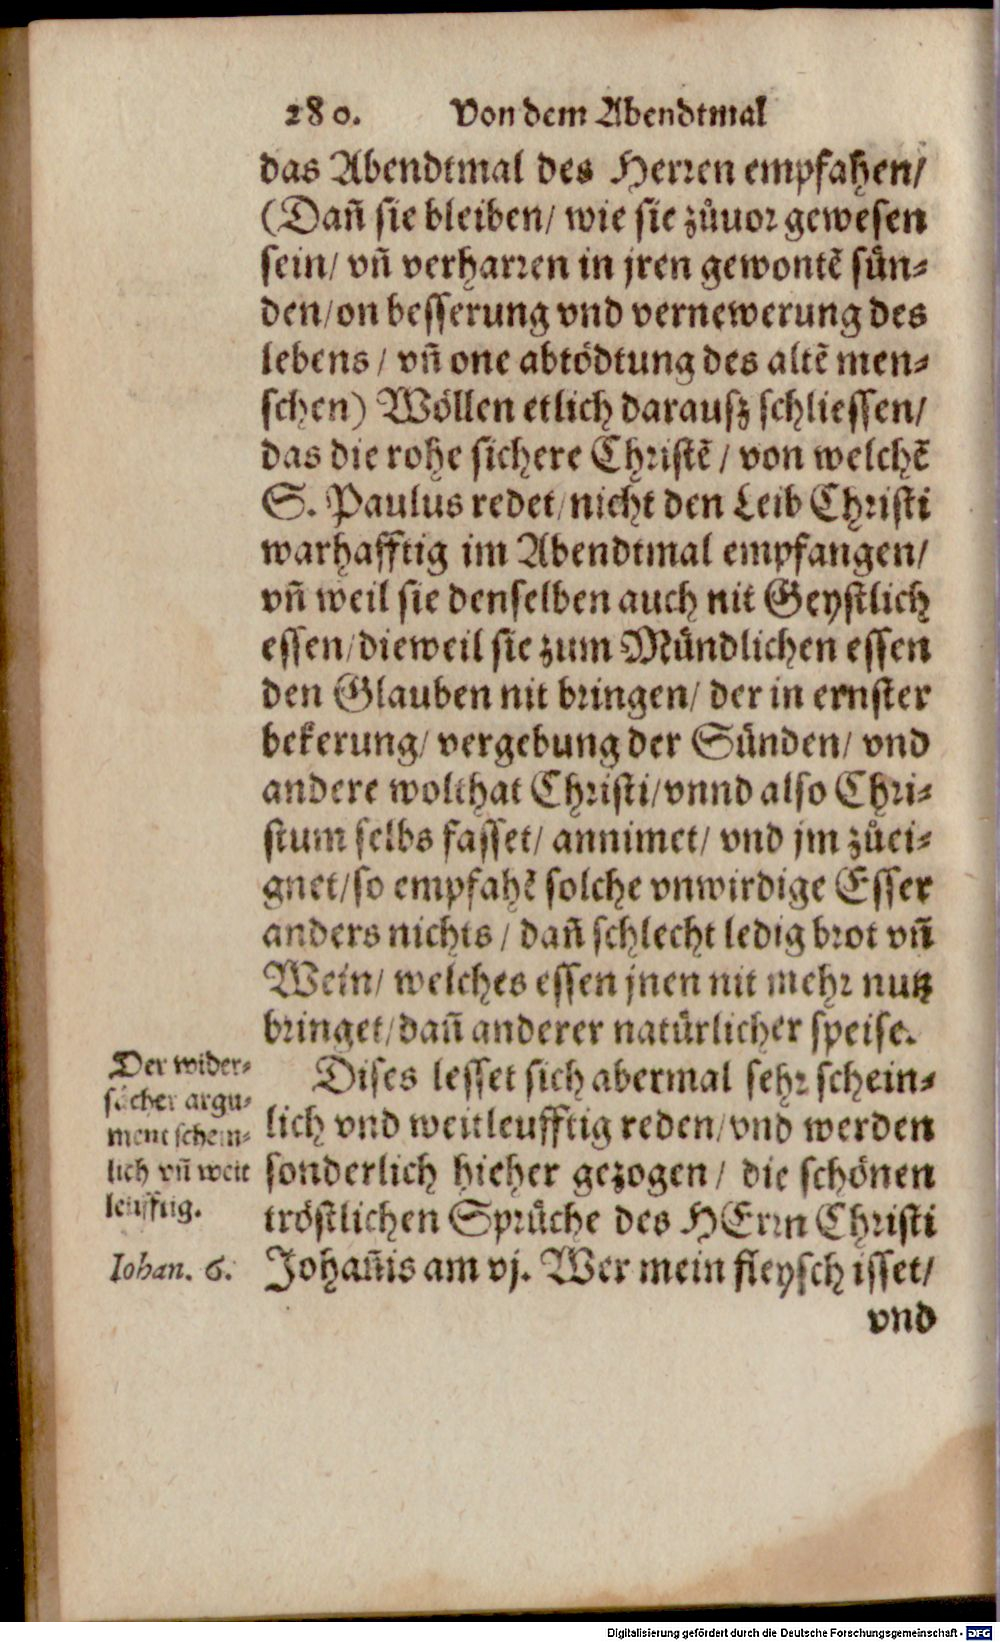 280. Von dem Abendtmal
das Abendtmal des Herren empfahen/
(Dañ sie bleiben/ wie sie zůuor gewesen
sein/ vñ verharren in jren gewontẽ sün-
den/ on besserung vnd vernewerung des
lebens/ vñ one abtödtung des altẽ men-
schen) Wöllen etlich darausz schliessen/
das die rohe sichere Christẽ/ von welchẽ
S. Paulus redet/ nicht den Leib Christi
warhafftig im Abendtmal empfangen/
vñ weil sie denselben auch nit Geystlich
essen/ dieweil sie zum Mündlichen essen
den Glauben nit bringen/ der in ernster
bekerung/ vergebung der Sünden/ vnd
andere wolthat Christi/ vnnd also Chri-
stum selbs fasset/ annimet/ vnd jm zůei-
gnet/ so empfahẽ solche vnwirdige Esser
anders nichts/ dañ schlecht ledig brot vñ
Wein/ welches essen jnen nit mehr nutz
bringet/ dañ anderer natürlicher speise.
Dises lesset sich abermal sehr schein-
lich vnd weitleufftig reden/ vnd werden
sonderlich hieher gezogen/ die schönen
tröstlichen Sprüche des HErrn Christi
Johañis am vj. Wer mein fleysch isset/
vnd
Der wider-
sächer argu-
ment schein-
lich vñ weit
leufftig.
Iohan. 6.
Digitalisierung gefördert durch die Deutsche Forschungsgemeinschaft - DFG